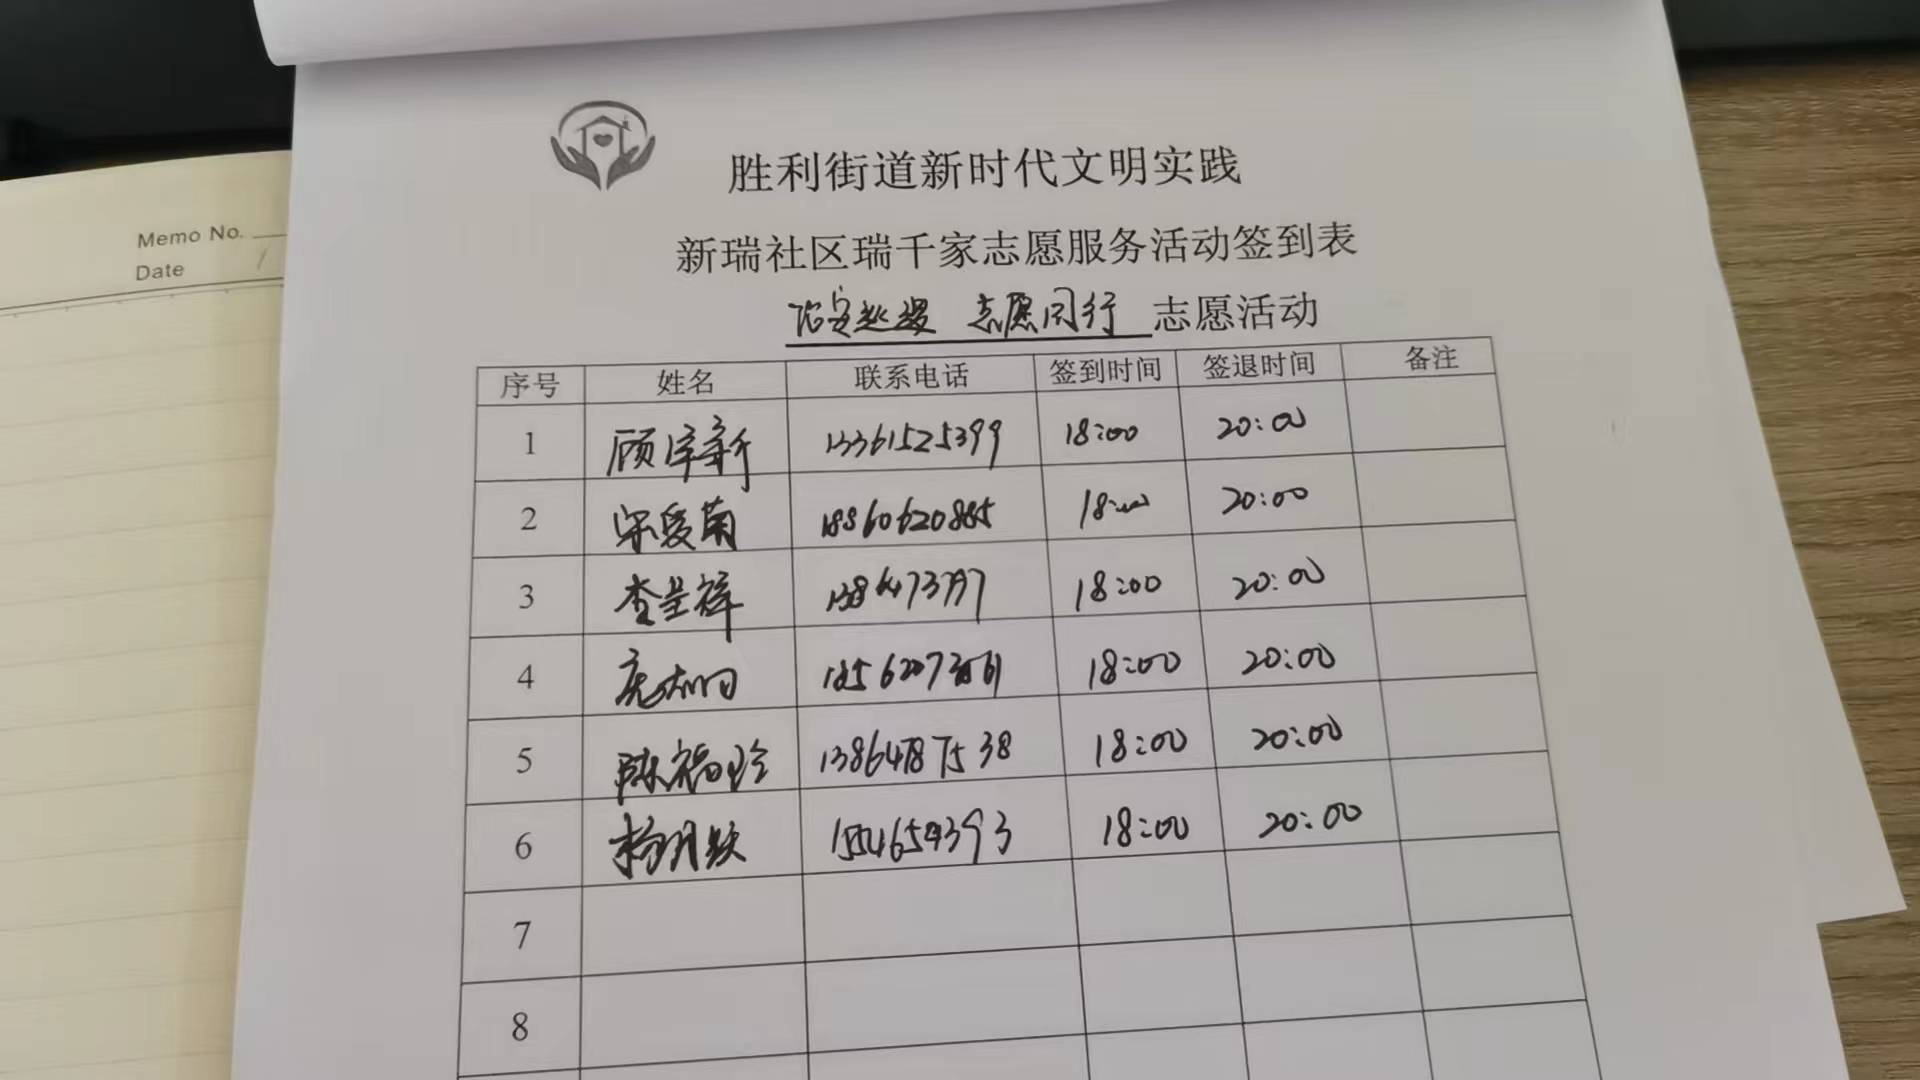 Memo No.
Date
胜利街道新时代文明实践
新瑞社区瑞千家志愿服务活动签到表
治安巡逻 志愿同行 志愿活动
序号 姓名 联系电话 签到时间 签退时间 备注
1 顾宇新 13361525399 18:00 20:00
2 宋爱菊 18860620885 18:00 20:00
3 18:00 20:00
4 18:00 20:00
5 陈福玲 13864787538 18:00 20:00
6 18:00 20:00
7
8